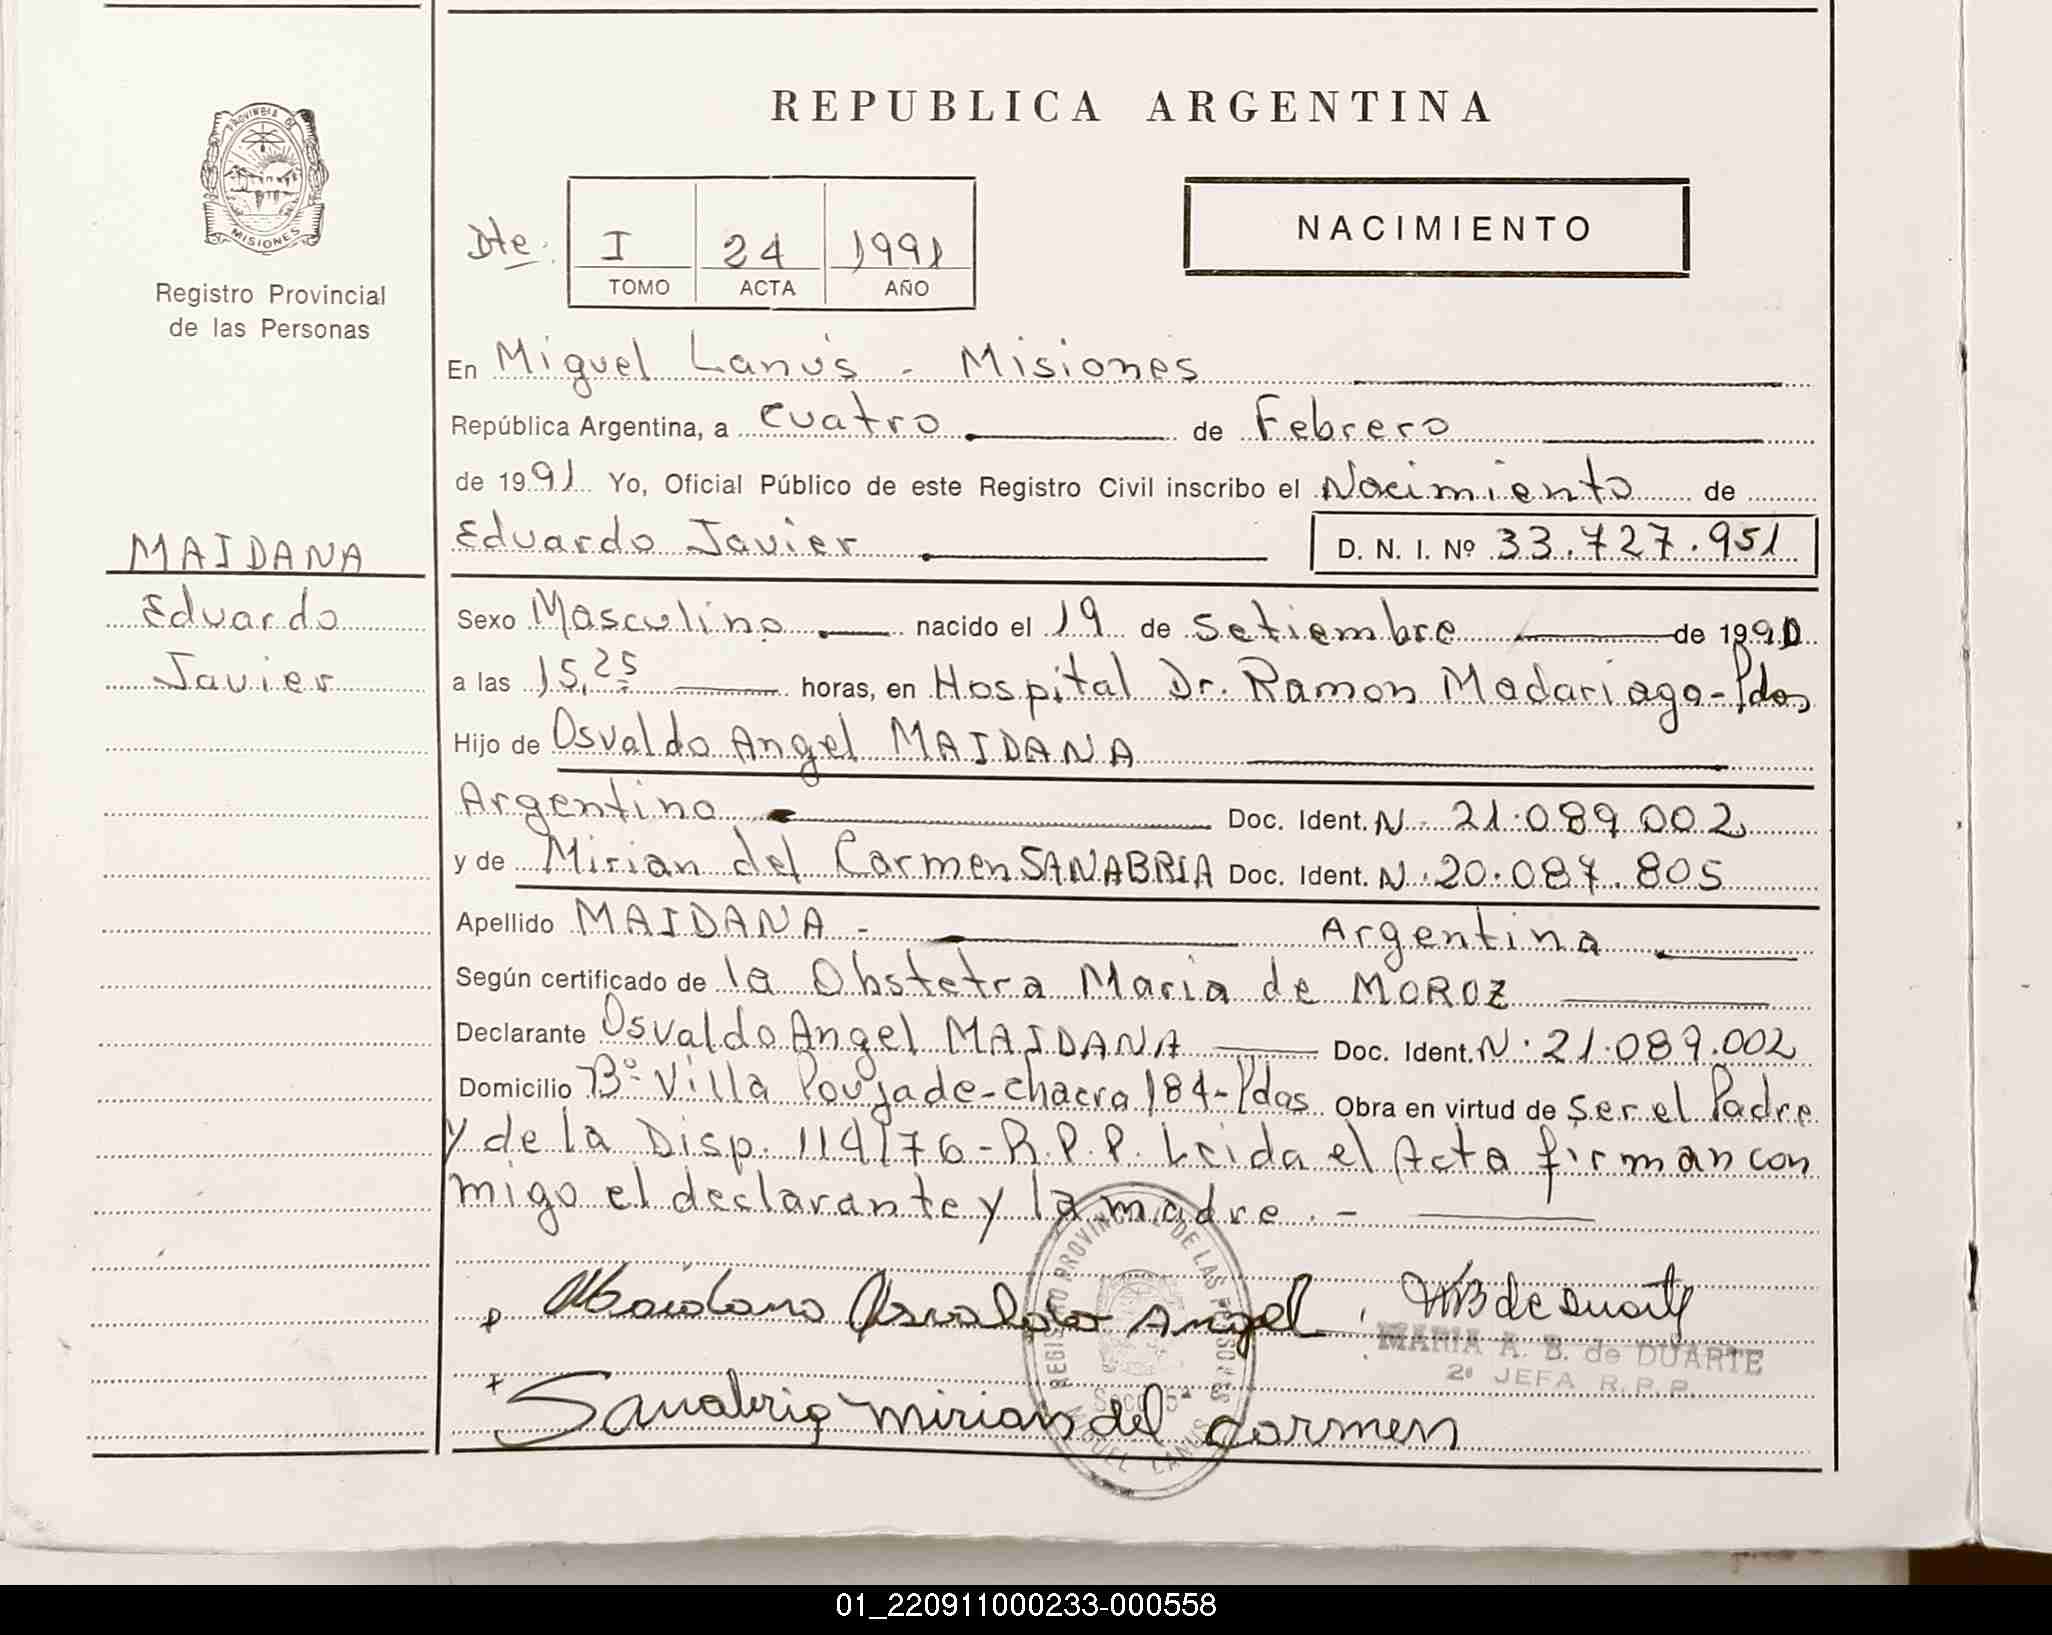 REPUBLICA ARGENTINA
PROVINCIA DE
MISIONES
Registro Provincial
de las Personas
NACIMIENTO
Dte. I 24 1991
TOMO ACTA AÑO
En Miguel Lanús - Misiones
República Argentina, a cuatro de Febrero
de 1991 Yo, Oficial Público de este Registro Civil inscribo el Nacimiento de
MAIDANA
Eduardo
Javier
Eduardo Javier D. N. I. Nº 33.727.951
Sexo Masculino nacido el 19 de Setiembre de 1990
a las 15,25 horas, en Hospital Dr. Ramon Madariaga-Pdas
Hijo de Osvaldo Angel MAIDANA
Argentino Doc. Ident. N. 21.089.002
y de Mirian del Carmen SANABRIA Doc. Ident. N. 20.087.805
Apellido MAIDANA - Argentina
Según certificado de la Obstetra Maria de MOROZ
Declarante Osvaldo Angel MAIDANA Doc. Ident. N. 21.089.002
Domicilio Bº Villa Poujade-chacra 184-Pdas Obra en virtud de ser el Padre
y de la Disp. 114/76-R.P.P. Leida el Acta firman con
migo el declarante y la madre.-
Maidana Osvaldo Angel
MB de Duarte
MARIA A. B. de DUARTE
2ª JEFA R.P.P.
Sanabria Mirian del Carmen
REGISTRO PROVINCIAL DE LAS PERSONAS
Secc. 5ª
MIGUEL LANUS
01_220911000233-000558